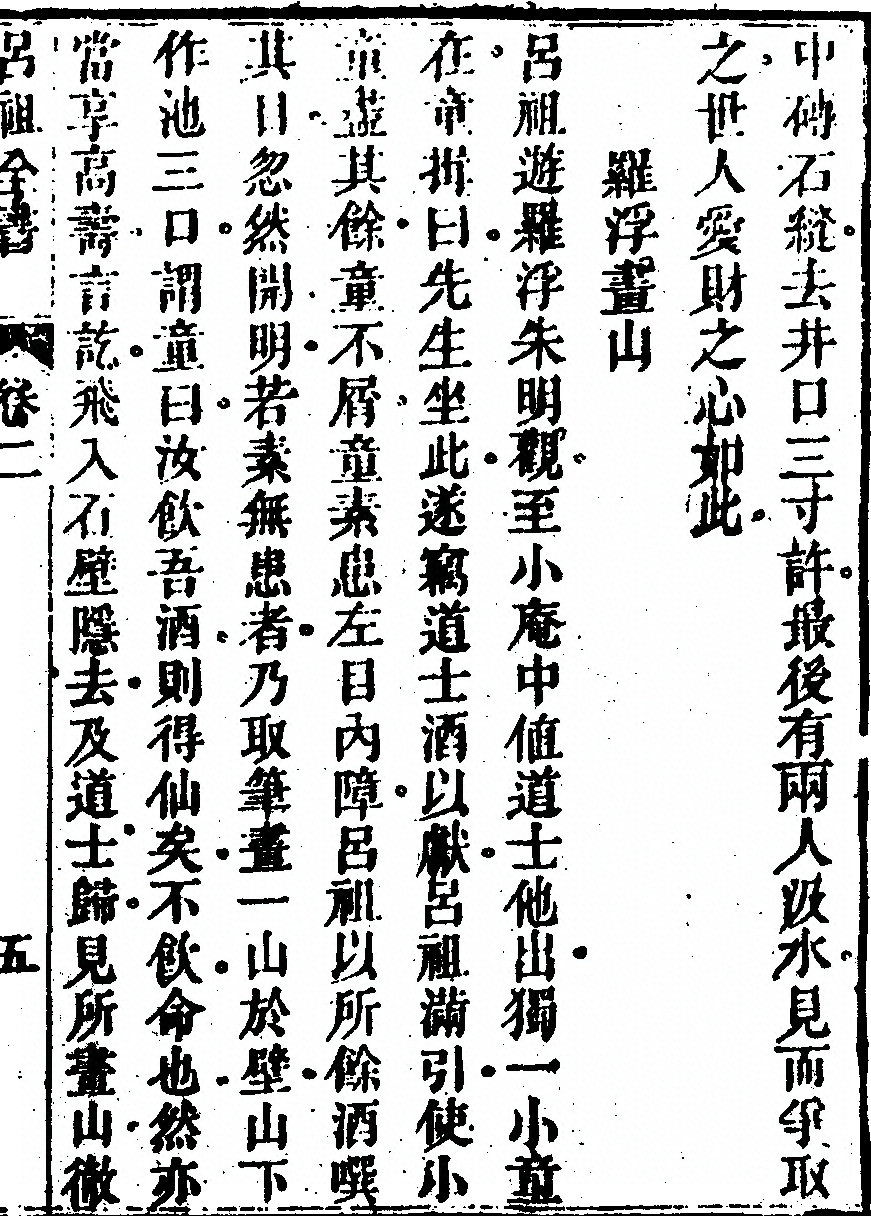 中磚石縫去井口三寸許最後有兩人汲水見而爭取
之世人愛財之心如此
羅浮畫山
呂祖遊羅浮朱明觀至小庵中值道士他出獨一小童
在童揖曰先生坐此遂竊道士酒以獻呂祖滿引使小
童盡其餘童不屑童素患左目內障呂祖以所餘酒噀
其目忽然開明若素無患者乃取筆畫一山於壁山下
作池三口謂童曰汝飲吾酒則得仙矣不飲命也然亦
當享高壽言訖飛入石壁隱去及道士歸見所畫山徹
呂祖全書 卷二 五